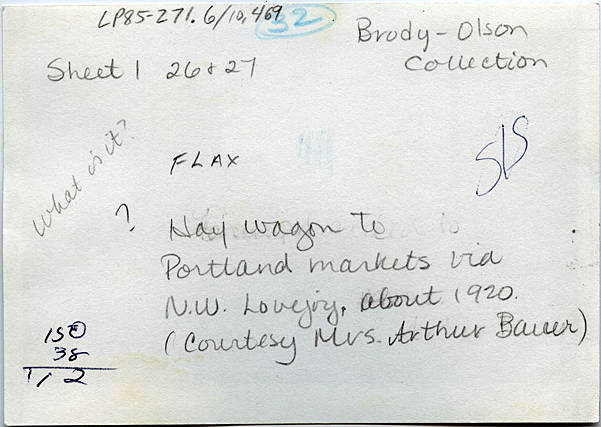 LP85-271.6/10,469
32
Brody-Olson
Collection
Sheet 1 26 & 27
What is it?
FLAX
SIS
? Hay wagon to
Portland markets via
N.W. Lovejoy, about 1920.
(Courtesy Mrs. Arthur Bauer)
150
38
112